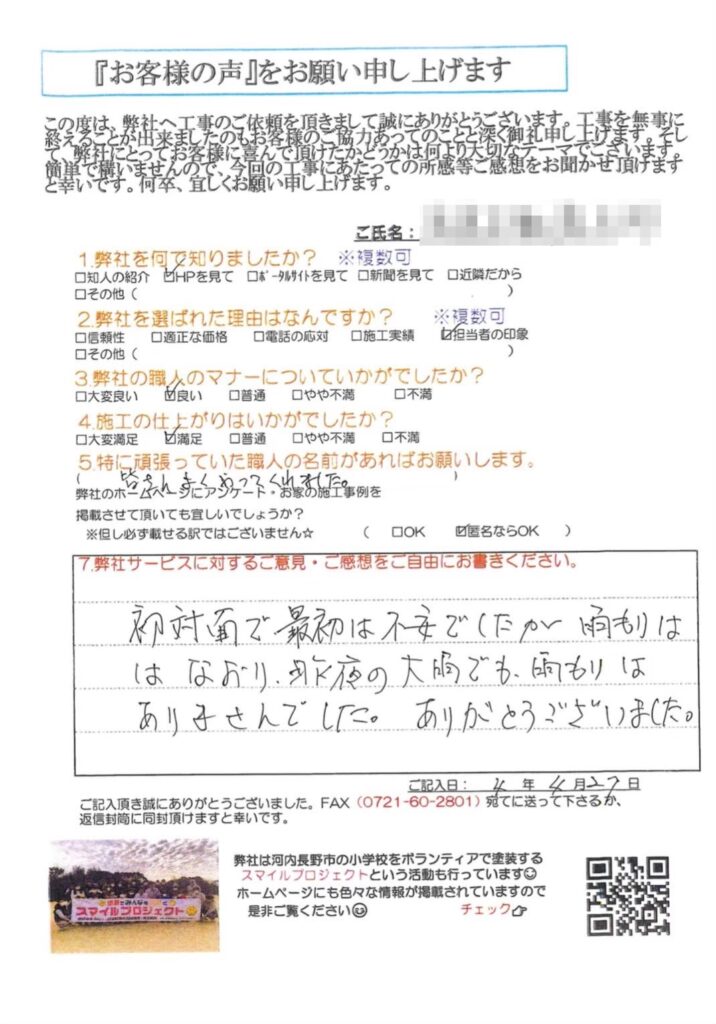 『お客様の声』をお願い申し上げます
この度は、弊社へ工事のご依頼を頂きまして誠にありがとうございます。工事を無事に
終えることが出来ましたのもお客様のご協力あってのことと深く御礼申し上げます。そし
て、弊社にとってお客様に喜んで頂けたかどうかは何より大切なテーマでございます。
簡単で構いませんので、今回の工事にあたっての所感等ご感想をお聞かせ頂けます
と幸いです。何卒、宜しくお願い申し上げます。
ご氏名:
1.弊社を何で知りましたか? ※複数可
□知人の紹介 ☑HPを見て □ポータルサイトを見て □新聞を見て □近隣だから
□その他( )
2.弊社を選ばれた理由はなんですか? ※複数可
□信頼性 □適正な価格 □電話の応対 □施工実績 ☑担当者の印象
□その他( )
3.弊社の職人のマナーについていかがでしたか?
□大変良い ☑良い □普通 □やや不満 □不満
4.施工の仕上がりはいかがでしたか?
□大変満足 ☑満足 □普通 □やや不満 □不満
5.特に頑張っていた職人の名前があればお願いします。
( 皆さんよくやってくれました。 )
弊社のホームページにアンケート・お家の施工事例を
掲載させて頂いても宜しいでしょうか?
※但し必ず載せる訳ではございません☆ ( □OK ☑匿名ならOK )
7.弊社サービスに対するご意見・ご感想をご自由にお書きください。
初対面で最初は不安でしたが雨もりは
は なおり、昨夜の大雨でも、雨もりは
ありませんでした。 ありがとうございました。
ご記入日: 4 年 4月27日
ご記入頂き誠にありがとうございました。FAX(0721-60-2801)宛てに送って下さるか、
返信封筒に同封頂けますと幸いです。
スマイルプロジェクト
弊社は河内長野市の小学校をボランティアで塗装する
スマイルプロジェクトという活動も行っています☺
ホームページにも色々な情報が掲載されていますので
是非ご覧ください☺ チェック☞